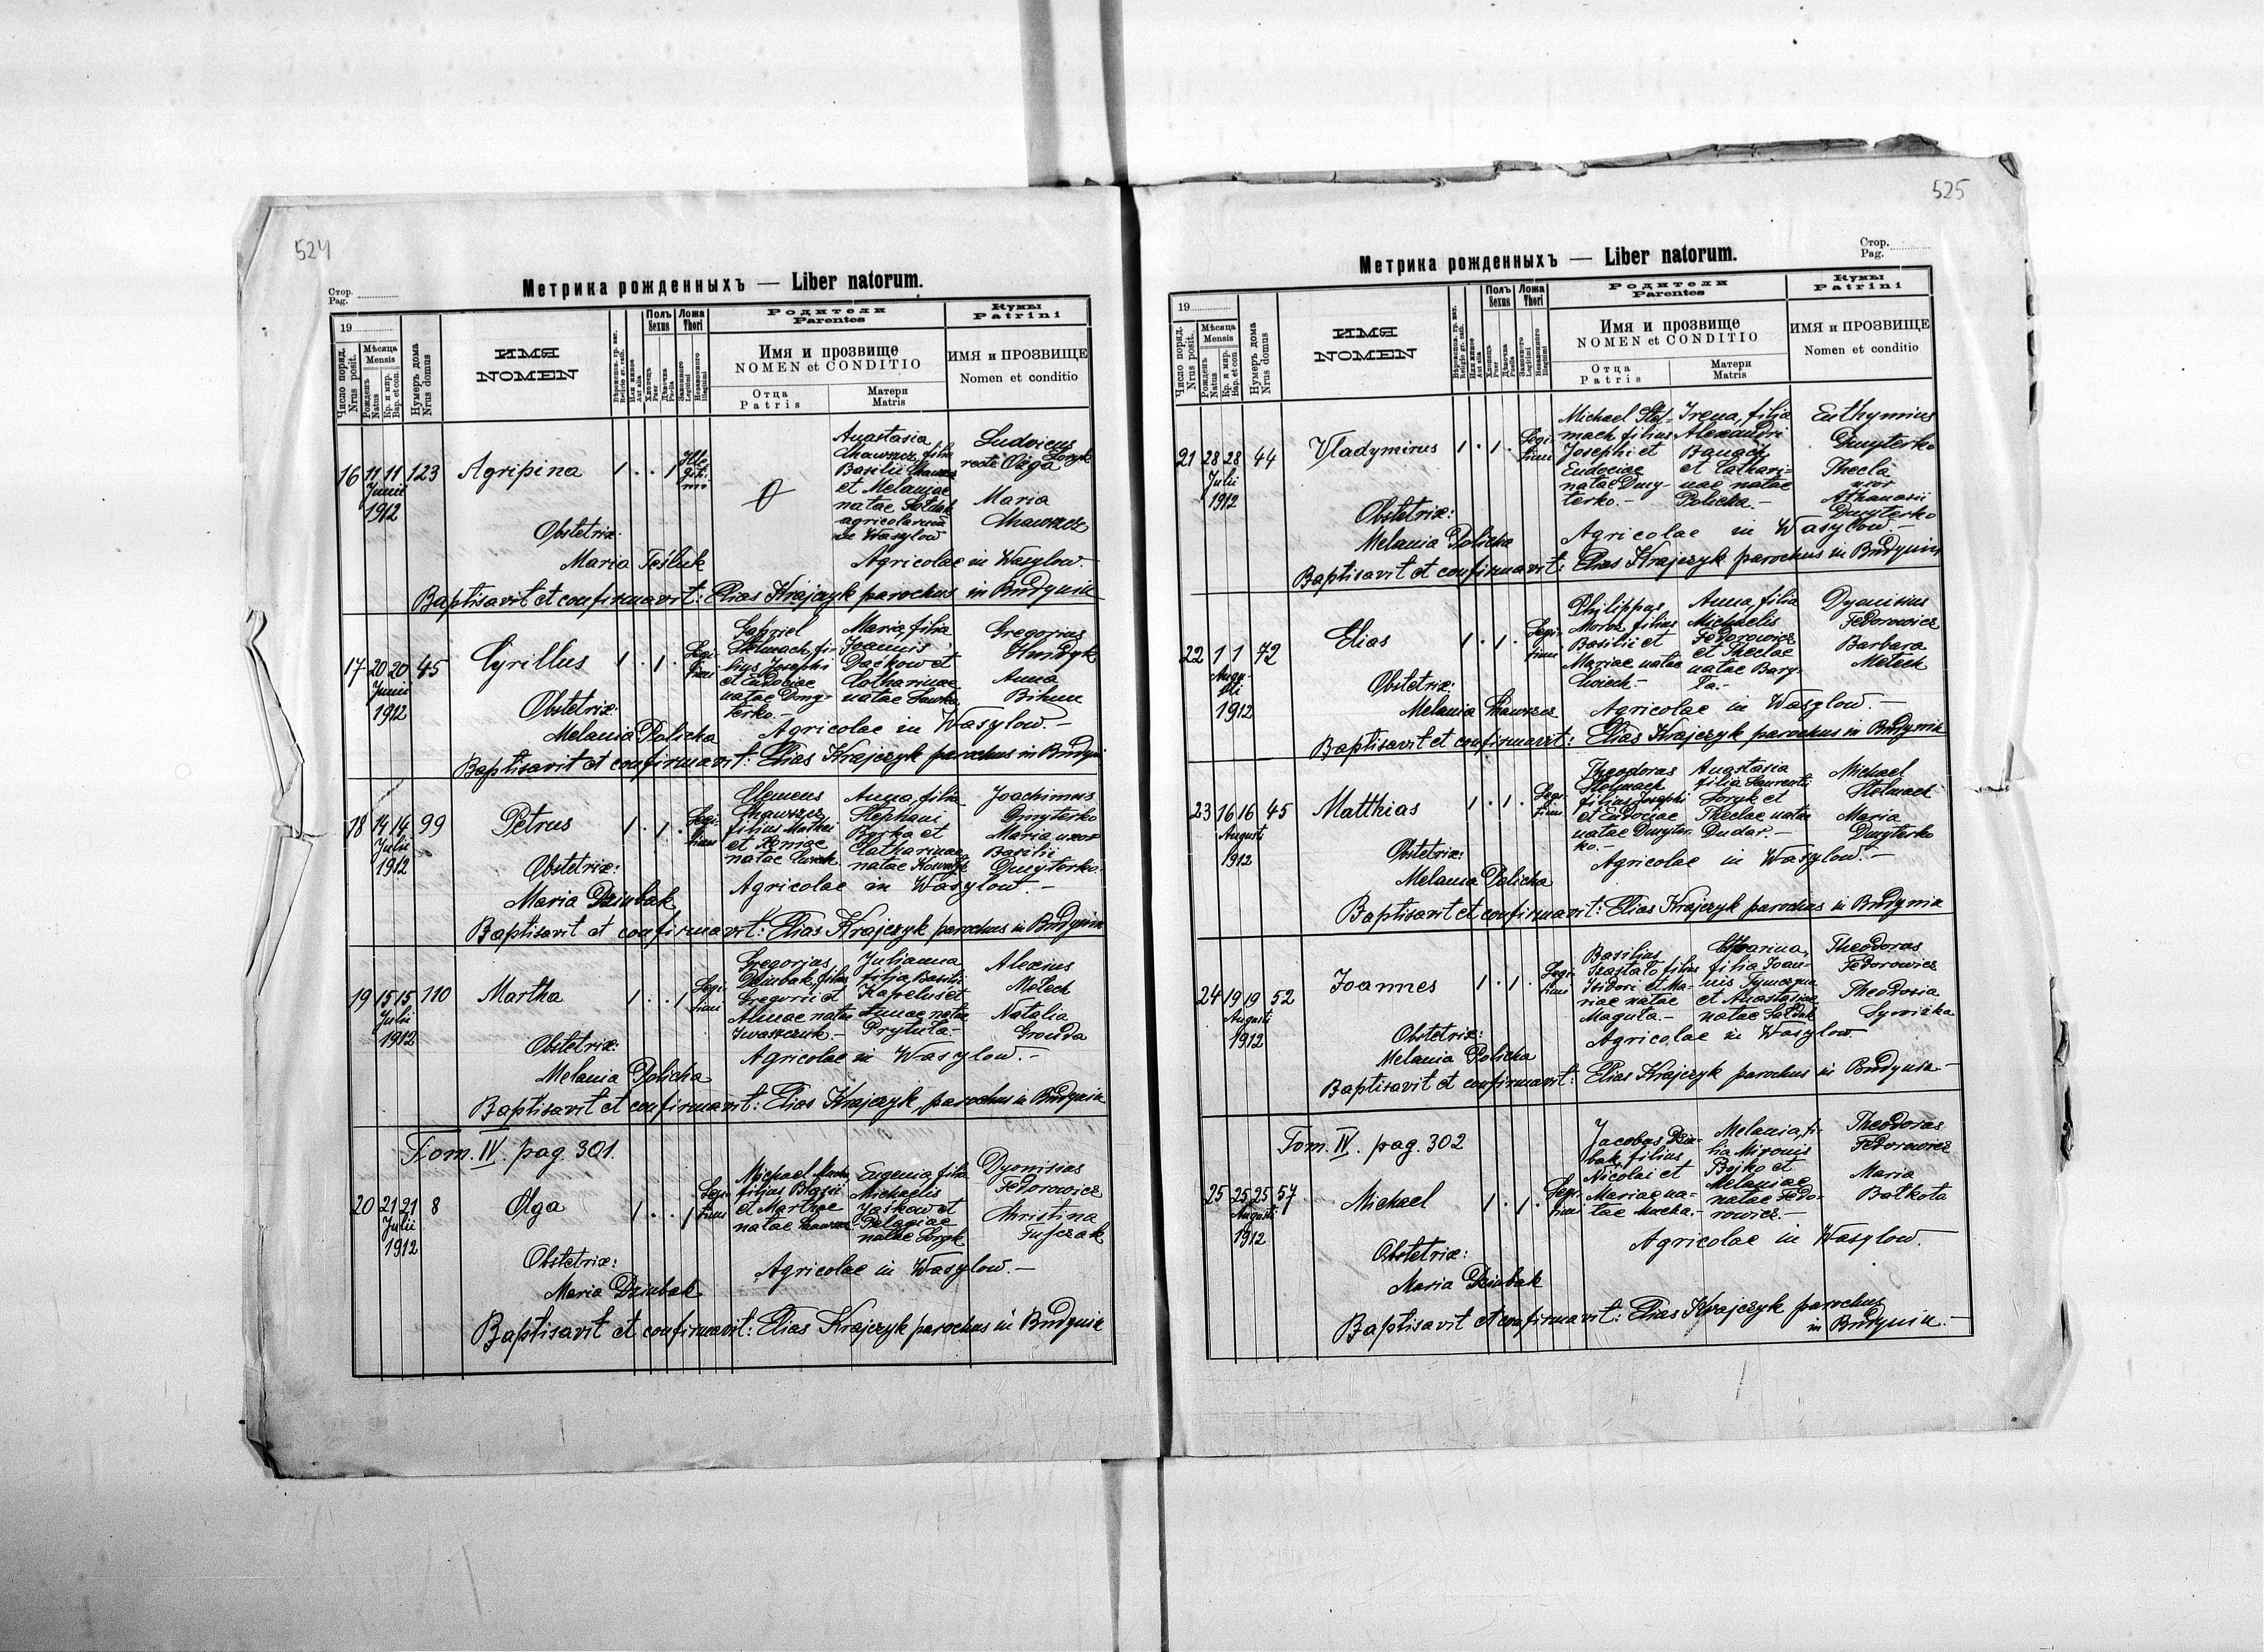 524
Метрика рожденныхъ — Liber natorum.
Стор.
Pag.
19
Число поряд.
Nrus posit.
Мѣсяца
Mensis
Рожденъ
Natus
Кр. и мир.
Bap. et con.
Нумеръ дома
Nrus domus
ИМЯ
NOMEN
Полъ
Sexus
Хлопецъ
Puer
Дѣвочка
Puella
Ложа
Thori
Законного
Legitimi
Незаконного
Illegitimi
Родители
Parentes
Имя и прозвище
NOMEN et CONDITIO
Отца
Patris
Матери
Matris
Кумы
Patrini
ИМЯ и ПРОЗВИЩЕ
Nomen et conditio
16 11 11 123 Agripina 1 . . 1 Ille-
giti-
mi
Junii
1912
Anastasia
filia
Basilii
et Melaniae
natae Sołdak
agricolarum
in Wasylow
Ludovicus
Soryk
recte Olga
Maria
Obstetrix:
Maria Teśluk
Agricolae in Wasylow.-
Baptisavit et confirmavit: Elias Krajczyk parochus in Budynin
17 20 20 45 Cyrillus 1 . 1 . Legi-
timi
Junii
1912
Gabriel
Stelmach, fi-
lius Josephi
et Eudociae
natae Dmy-
terko.-
Maria, filia
Joannis
Daćkow et
Catharinae
natae
Gregorius
Hundyk
Anna
Bihun
Obstetrix:
Melania Policha
Agricolae in Wasylow.-
Baptisavit et confirmavit: Elias Krajczyk parochus in Budyni
18 14 14 99 Petrus 1 . 1 . Legi-
timi
Julii
1912
Clemens
filius Mathei
et
natae
Anna, filia
Stephani
Bojka et
Catharinae
natae
Joachimus
Dmyterko
Maria uxor
Basilii
Dmyterko.
Obstetrix:
Maria Dziubak
Agricolae in Wasylow.-
Baptisavit et confirmavit: Elias Krajczyk parochus in Budynin
19 15 15 110 Martha 1 . . 1 Legi-
timi
Julii
1912
Gregorius
Dziubak, filius
Gregorii et
Annae natae
Iwaszczuk.-
Julianna
filia Basilii
Kapelus et
Annae natae
Prytuła-
Alexius
Melech
Natalia
Gronda
Obstetrix:
Melania Policha
Agricolae in Wasylow.-
Baptisavit et confirmavit: Elias Krajczyk, parochus in Budynin
Tom. IV. pag. 301.
20 21 21 8 Olga 1 . . 1 Legi-
timi
Julii
1912
Michael
filius Blasii
et Marthae
natae
Eugenia, filia
Michaelis
Jaśkow et
Pelagiae
natae Soryk
Dyonisius
Fedorowicz
Christina
Fujczak
Obstetrix:
Maria Dziubak
Agricolae in Wasylow.-
Baptisavit et confirmavit: Elias Krajczyk parochus in Budynin
525
Метрика рожденныхъ — Liber natorum.
Стор.
Pag.
19
Число поряд.
Nrus posit.
Мѣсяца
Mensis
Рожденъ
Natus
Кр. и мир.
Bap. et con.
Нумеръ дома
Nrus domus
ИМЯ
NOMEN
Полъ
Sexus
Хлопецъ
Puer
Дѣвочка
Puella
Ложа
Thori
Законного
Legitimi
Незаконного
Illegitimi
Родители
Parentes
Имя и прозвище
NOMEN et CONDITIO
Отца
Patris
Матери
Matris
Кумы
Patrini
ИМЯ и ПРОЗВИЩЕ
Nomen et conditio
21 28 28 44 Vladymirus 1 . 1 . Legi-
timi
Julii
1912
Michael Stel-
mach filius
Josephi et
Eudociae
natae Dmy-
terko.-
Irena, filia
Alexandri
Banach
et Cathari-
nae natae
Policha.-
Euthymius
Dmyterko
Thecla
uxor
Athanasii
Dmyterko
Obstetrix:
Melania Policha
Agricolae in Wasylow.-
Baptisavit et confirmavit: Elias Krajczyk parochus in Budynin
22 1 1 72 Elias 1 . 1 . Legi-
timi
Augu-
sti
1912
Philippus
Moroz filius
Basilii et
Mariae natae
Anna, filia
Michaelis
Fedorowicz
et Theclae
natae Bary-
ła.-
Dyonisius
Fedorowicz
Barbara
Melech
Obstetrix:
Melania
Agricolae in Wasylow.-
Baptisavit et confirmavit: Elias Krajczyk parochus in Budynin
23 16 16 45 Matthias 1 . 1 . Legi-
timi
Augusti
1912
Theodorus
Stelmach
filius Josephi
et Eudociae
natae Dmyter-
ko.-
Anastasia
filia Laurentii
Soryk et
Theclae natae
Dudar.-
Michael
Stelmach
Maria
Dmyterko
Obstetrix:
Melania Policha
Agricolae in Wasylow.-
Baptisavit et confirmavit: Elias Krajczyk parochus in Budynin
24 19 19 52 Joannes 1 . 1 . Legi-
timi
Augusti
1912
Basilius
filius
Isidori et Ma-
riae natae
Maguła-
filia Joan-
nis
et Anastasiae
natae Sołdak
Theodorus
Fedorowicz
Theodosia
Obstetrix:
Melania Policha
Agricolae in Wasylow.
Baptisavit et confirmavit: Elias Krajczyk parochus in Budynin-
Tom. IV. pag. 302
25 25 25 57 Michael 1 . 1 . Legi-
timi
Augusti
1912
Jacobus Dziu-
bak, filius
Nicolai et
Mariae na-
tae Mucha.-
Melania, fi-
lia Mironis
Bojko et
Melaniae
natae Fedo-
rowicz.-
Theodorus
Fedorowicz
Maria
Bałkota
Obstetrix:
Maria Dziubak
Agricolae in Wasylow.
Baptisavit et confirmavit: Elias Krajczyk parochus
in Budynin.-